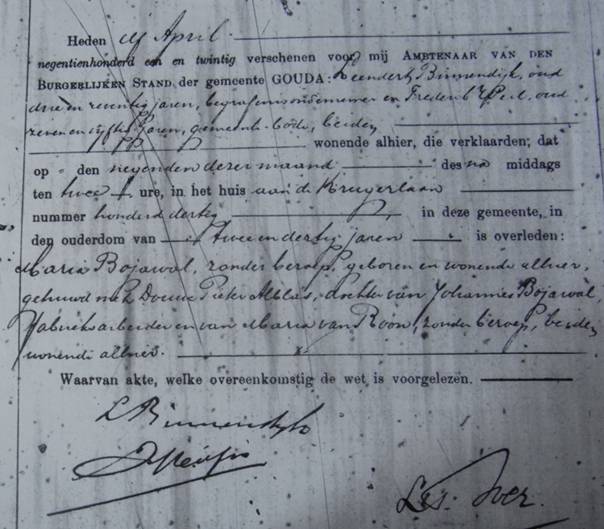 Heden elf April
negentienhonderd een en twintig verschenen voor mij AMBTENAAR VAN DEN
BURGERLIJKEN STAND der gemeente GOUDA: Leendert Binnendijk, oud
drie en zeventig jaren, begrafenisondernemer en Frederik, oud
zeven en vijftig jaren, gemeente-bode, beiden
wonende alhier, die verklaarden, dat
op den negenden dezer maand des na middags
ten twee ure, in het huis aan d Krugerlaan
nummer honderd dertig in deze gemeente, in
den ouderdom van twee en dertig jaren is overleden:
Maria Bojawal, zonder beroep, geboren en wonende alhier,
gehuwd met Douwe Pieter Ablas, dochter van Johannes Bojawal,
fabrieksarbeider en van Maria van Roon, zonder beroep, beiden
wonende alhier.
Waarvan akte, welke overeenkomstig de wet is voorgelezen.
L Binnendijk